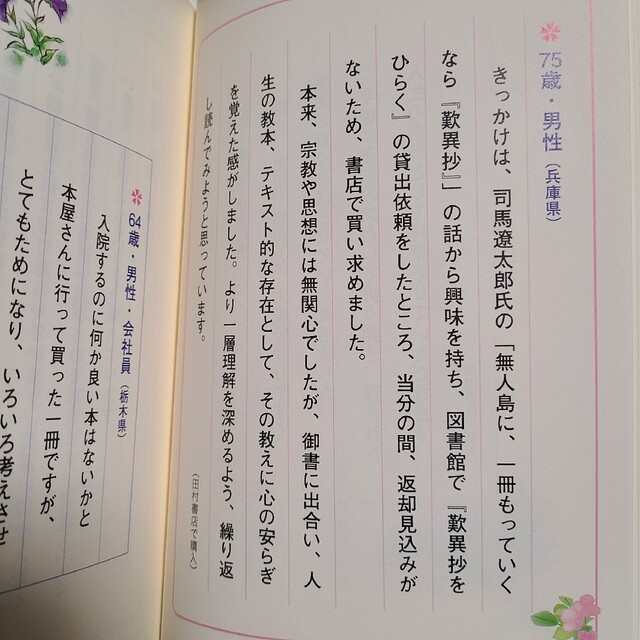 75歳・男性（兵庫県）
きっかけは、司馬遼太郎氏の「無人島に、一冊もっていく
なら『歎異抄』」の話から興味を持ち、図書館で『歎異抄を
ひらく』の貸出依頼をしたところ、当分の間、返却見込みが
ないため、書店で買い求めました。
本来、宗教や思想には無関心でしたが、御書に出合い、人
生の教本、テキスト的な存在として、その教えに心の安らぎ
を覚えた感がしました。より一層理解を深めるよう、繰り返
し読んでみようと思っています。
（田村書店で購入）
64歳・男性・会社員（栃木県）
入院するのに何か良い本はないかと
本屋さんに行って買った一冊ですが、
とてもためになり、いろいろ考えさせ